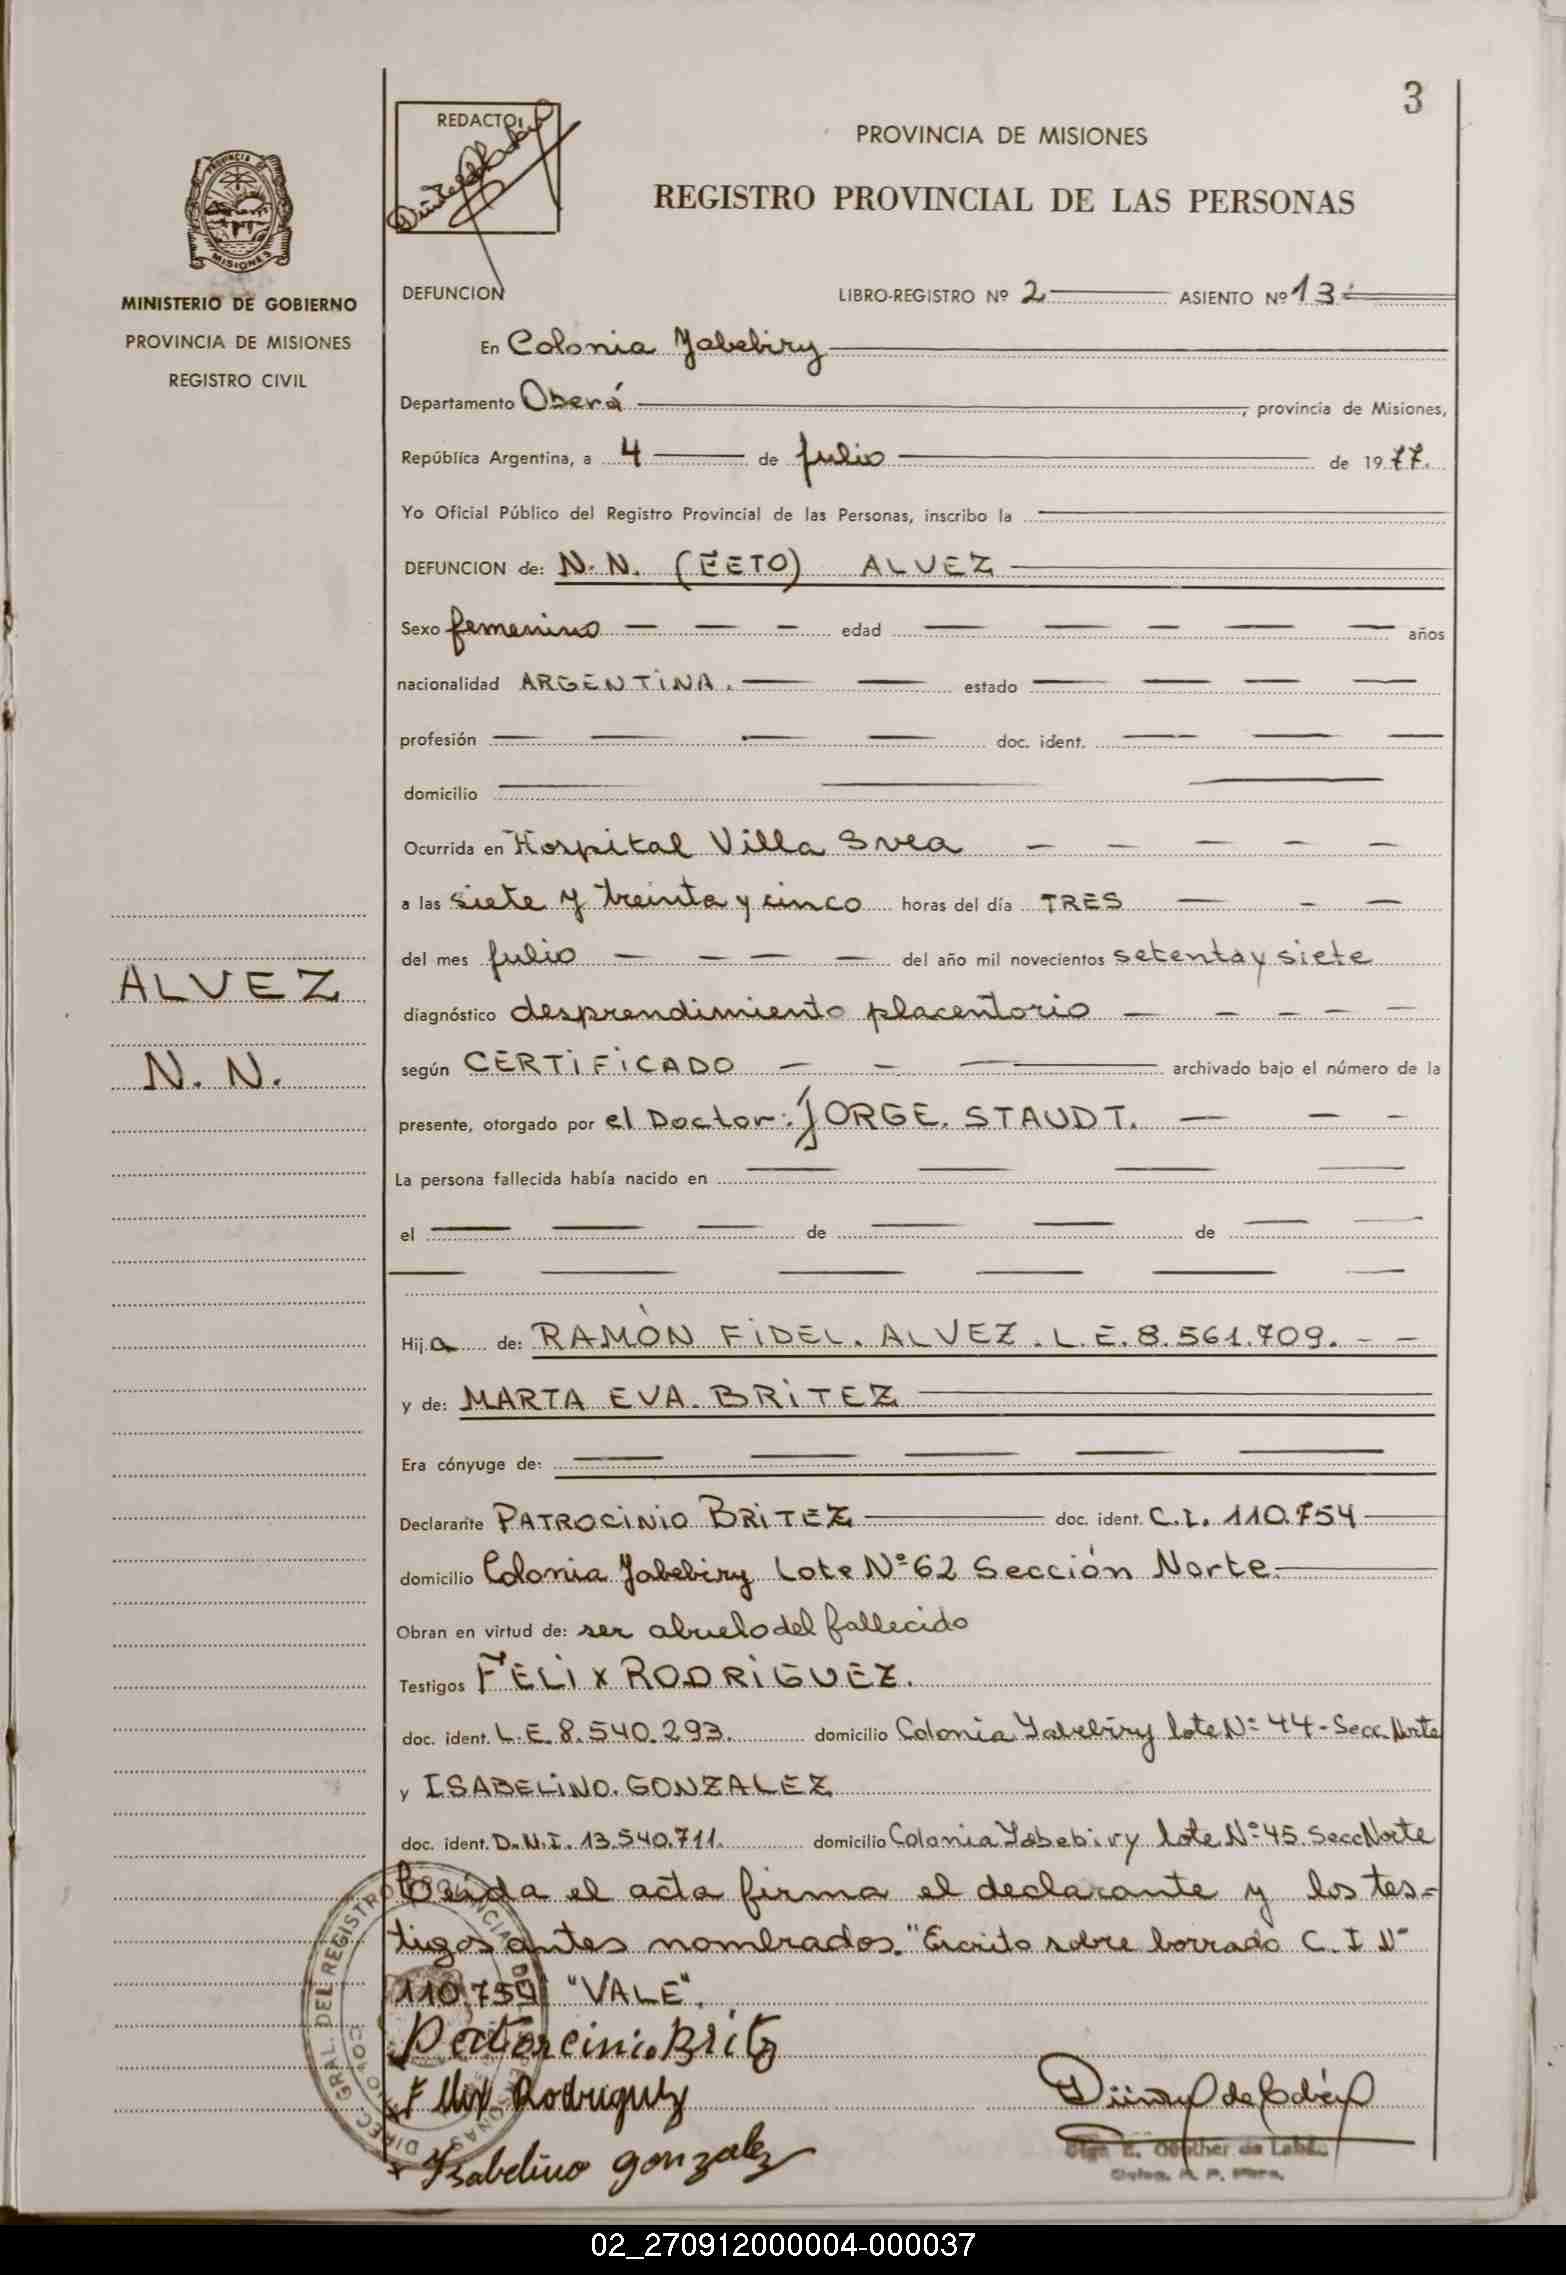 3
REDACTO:
PROVINCIA DE MISIONES
REGISTRO PROVINCIAL DE LAS PERSONAS
PROVINCIA DE
MISIONES
MINISTERIO DE GOBIERNO
PROVINCIA DE MISIONES
REGISTRO CIVIL
DEFUNCION LIBRO-REGISTRO Nº 2 ASIENTO Nº 13
En Colonia Yabebiry
Departamento Oberá, provincia de Misiones,
República Argentina, a 4 de julio de 1977.
Yo Oficial Público del Registro Provincial de las Personas, inscribo la
DEFUNCION de: N.N. (FETO) ALVEZ
Sexo femenino edad años
nacionalidad ARGENTINA. estado
profesión doc. ident.
domicilio
Ocurrida en Hospital Villa Svea
a las siete y treinta y cinco horas del día TRES
del mes julio del año mil novecientos setenta y siete
diagnóstico desprendimiento placentorio
según CERTIFICADO archivado bajo el número de la
presente, otorgado por el Doctor: JORGE. STAUDT.
La persona fallecida había nacido en
el de de
Hija de: RAMÓN FIDEL. ALVEZ. L.E. 8.561.709.
y de: MARTA EVA. BRITEZ
Era cónyuge de:
Declarante PATROCINIO BRITEZ doc. ident. C.I. 110.754
domicilio Colonia Yabebiry Lote Nº 62 Sección Norte.
Obran en virtud de: ser abuelo del fallecido
Testigos FELIX RODRIGUEZ.
doc. ident. L.E. 8.540.293. domicilio Colonia Yabebiry lote Nº 44 - Secc. Norte
y ISABELINO. GONZALEZ
doc. ident. D.N.I. 13.540.711. domicilio Colonia Yabebiry lote Nº 45 Secc Norte
Leida el acta firma el declarante y los tes=
tigos antes nombrados. "Escrito sobre borrado C.I Nº
110.754 "VALE".
Felix Rodriguez
Isabelino gonzalez
ALVEZ
N. N.
DIREC. GRAL. DEL REGISTRO PROVINCIAL DE
02_270912000004-000037